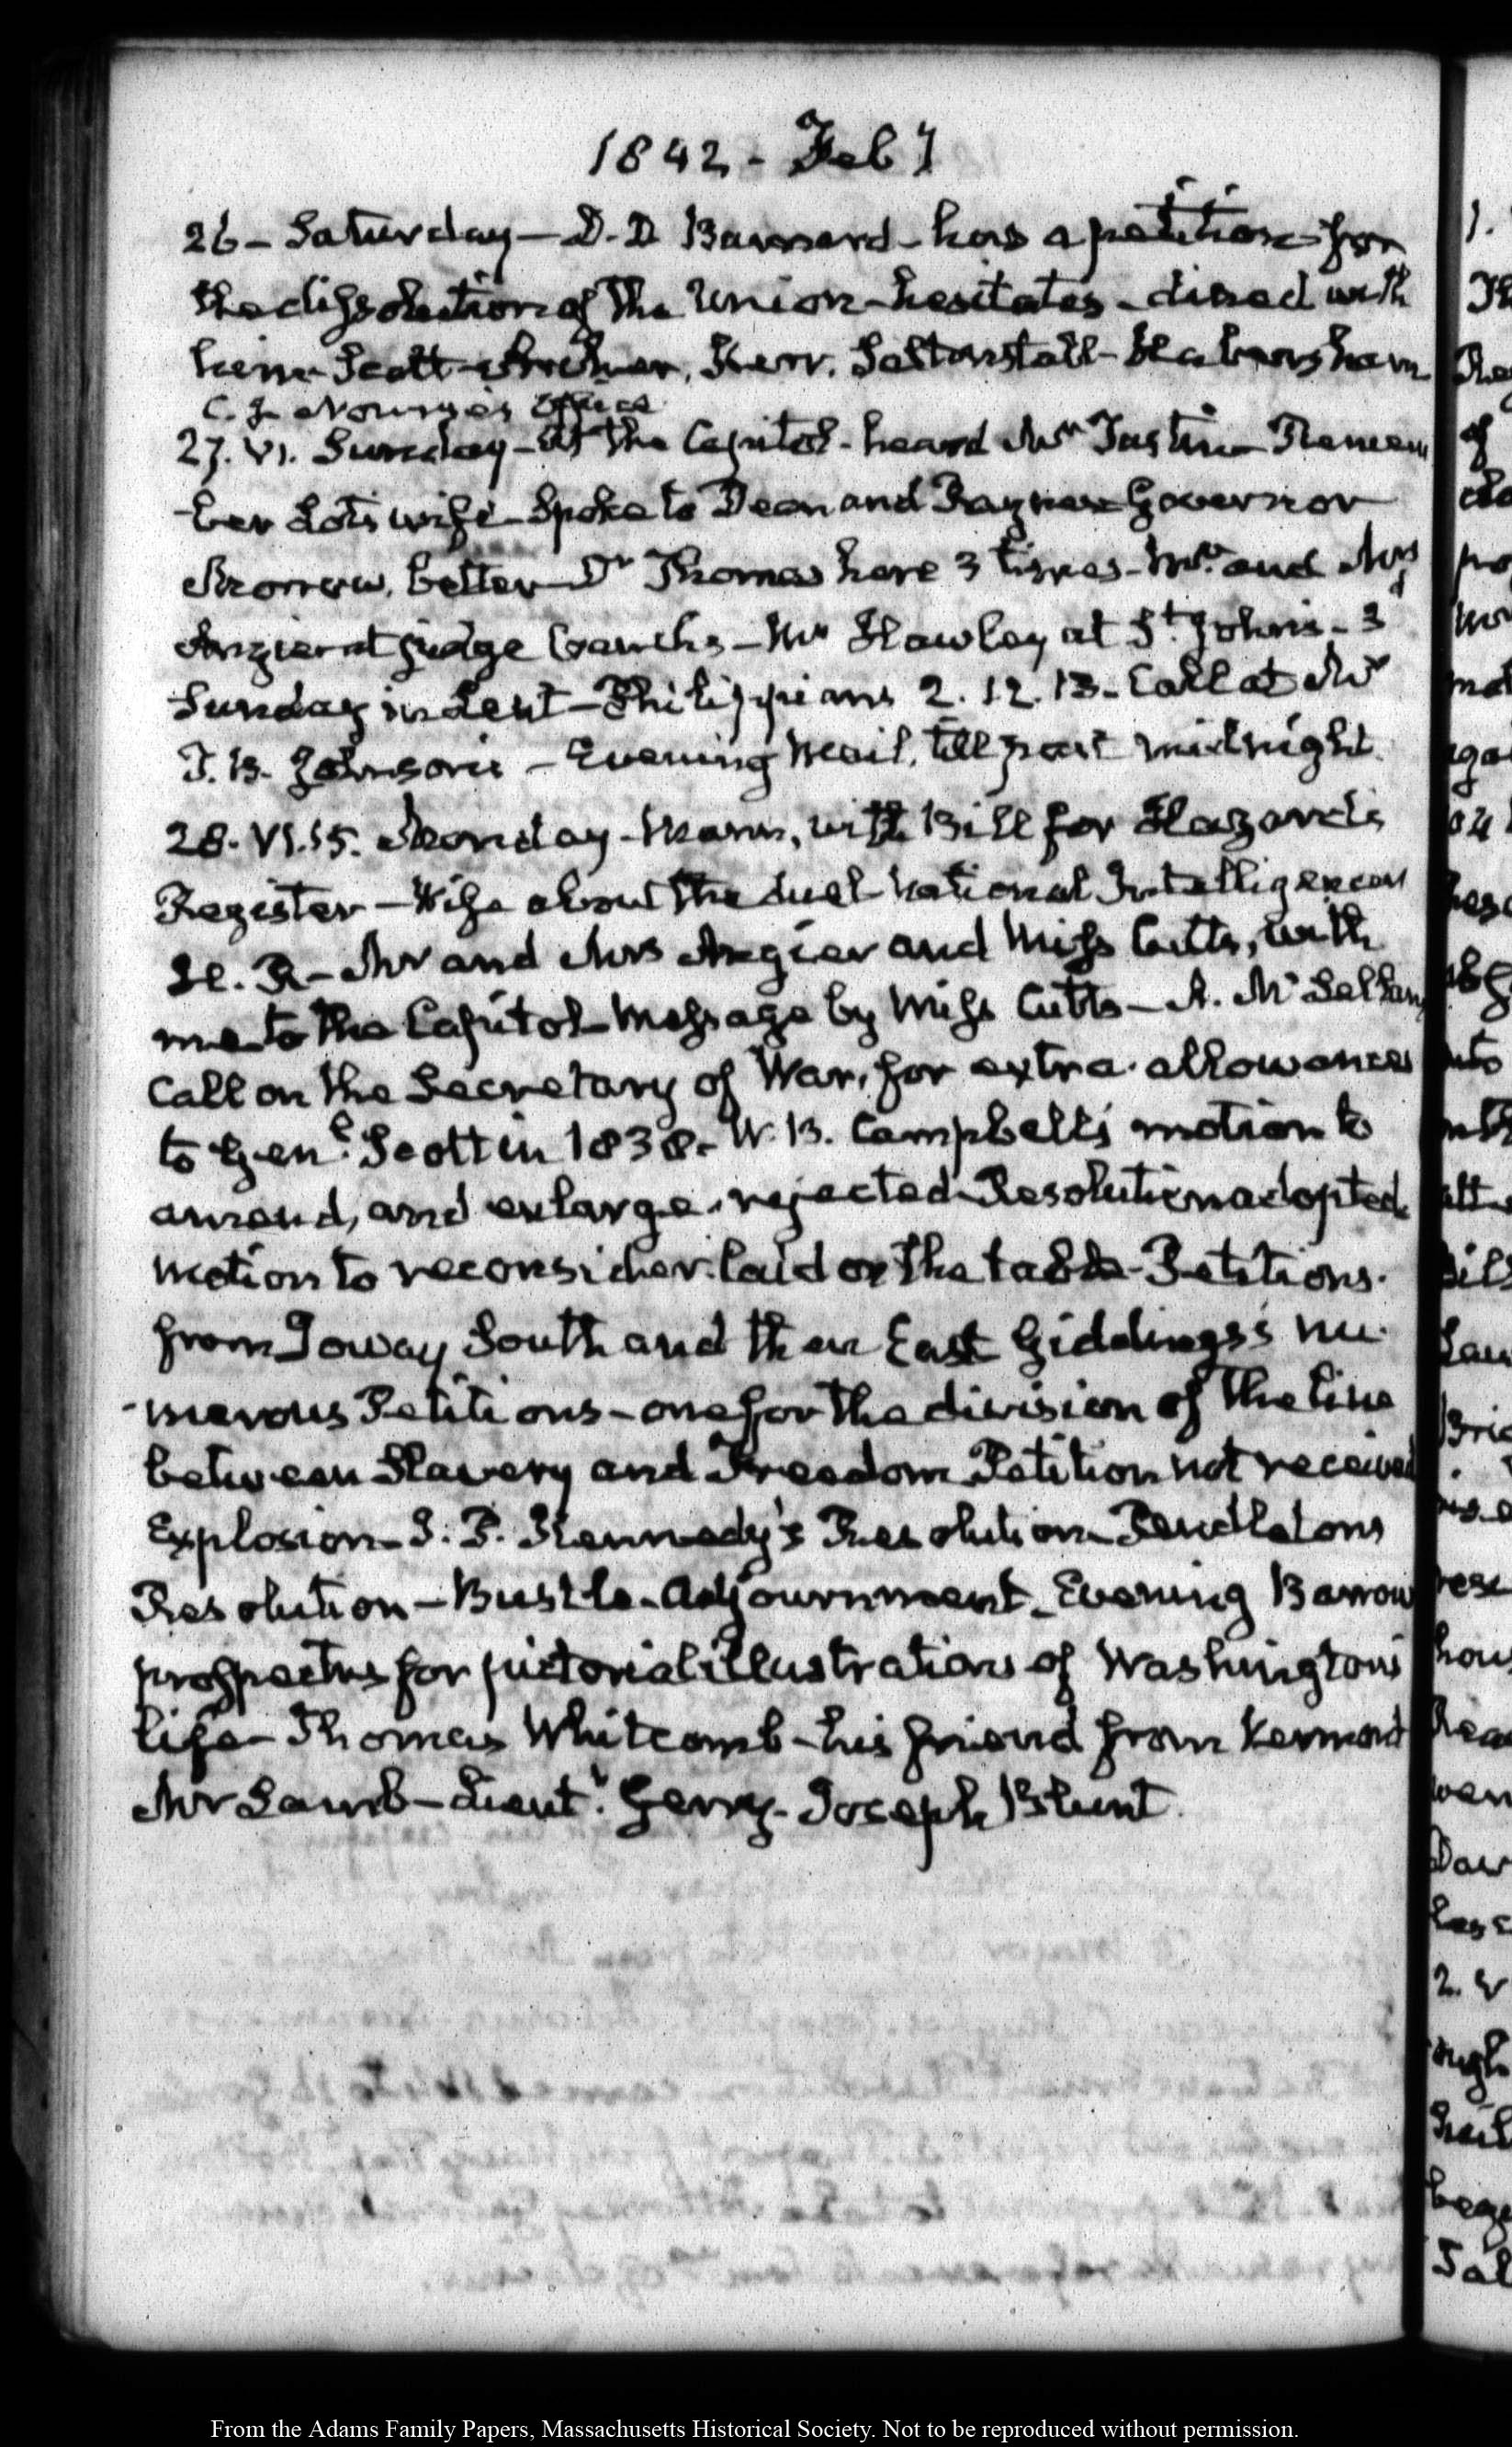 1842 - Feb 7
26 - Saturday - D. D. Barnard - has a petition for
the dissolution of the Union - hesitates - dined with
him - Scott - Archer, Kerr, Saltonstall - Habersham
C. J. Nourse's Office
27. VI. Sunday - At the Capitol - heard Mr Tustin - Remem
ber Lot's wife - Spoke to Dean and Rayner Governor
Morrow, better - Dr Thomas here 3 times - Mr. and Mrs
Angier at judge Cranch's - Mr Hawley at St. John's - 3d
Sunday in Lent - Philippians 2. 12. 13 - Call at Mr
J. B. Johnson's - Evening mail, till past midnight.
28. VI. 15. Monday - Mann, with Bill for Hazard's
Register - Wise about the duel - National Intelligencer
H. R - Mr and Mrs Angier and Miss Cutts, with
me to the Capitol - Message by Miss Cutts - A. McLellan's
Call on the Secretary of War, for extra allowances
to Genl. Scott in 1838 - W. B. Campbell's motion to
amend, and enlarge, rejected - Resolution adopted
motion to reconsider laid on the table - Petitions.
from Ioway South and then East Giddings's nu-
-merous Petitions - one for the division of the line
between Slavery and Freedom - Petition not received
Explosion - J. P. Kennedy's Resolution - Pendleton's
Resolution - Bustle - adjournment - Evening Barrow
prospectus for pictorial illustrations of Washington's
life - Thomas Whitcomb - his friend from Vermont
Mr Lamb - Lieut. Gerry - Joseph Blunt.
1.
of
From the Adams Family Papers, Massachusetts Historical Society. Not to be reproduced without permission.